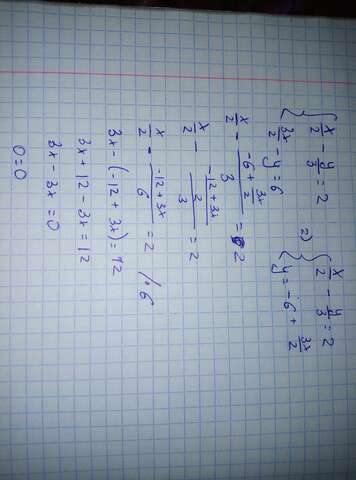 { x/2 - y/3 = 2 => { x/2 - y/3 = 2
3x/2 - y = 6 y = -6 + 3x/2
x/2 - (-6 + 3x/2)/3 = 2
x/2 - ((-12 + 3x)/2)/3 = 2
x/2 - (-12 + 3x)/6 = 2 /·6
3x - (-12 + 3x) = 12
3x + 12 - 3x = 12
3x - 3x = 0
0 = 0